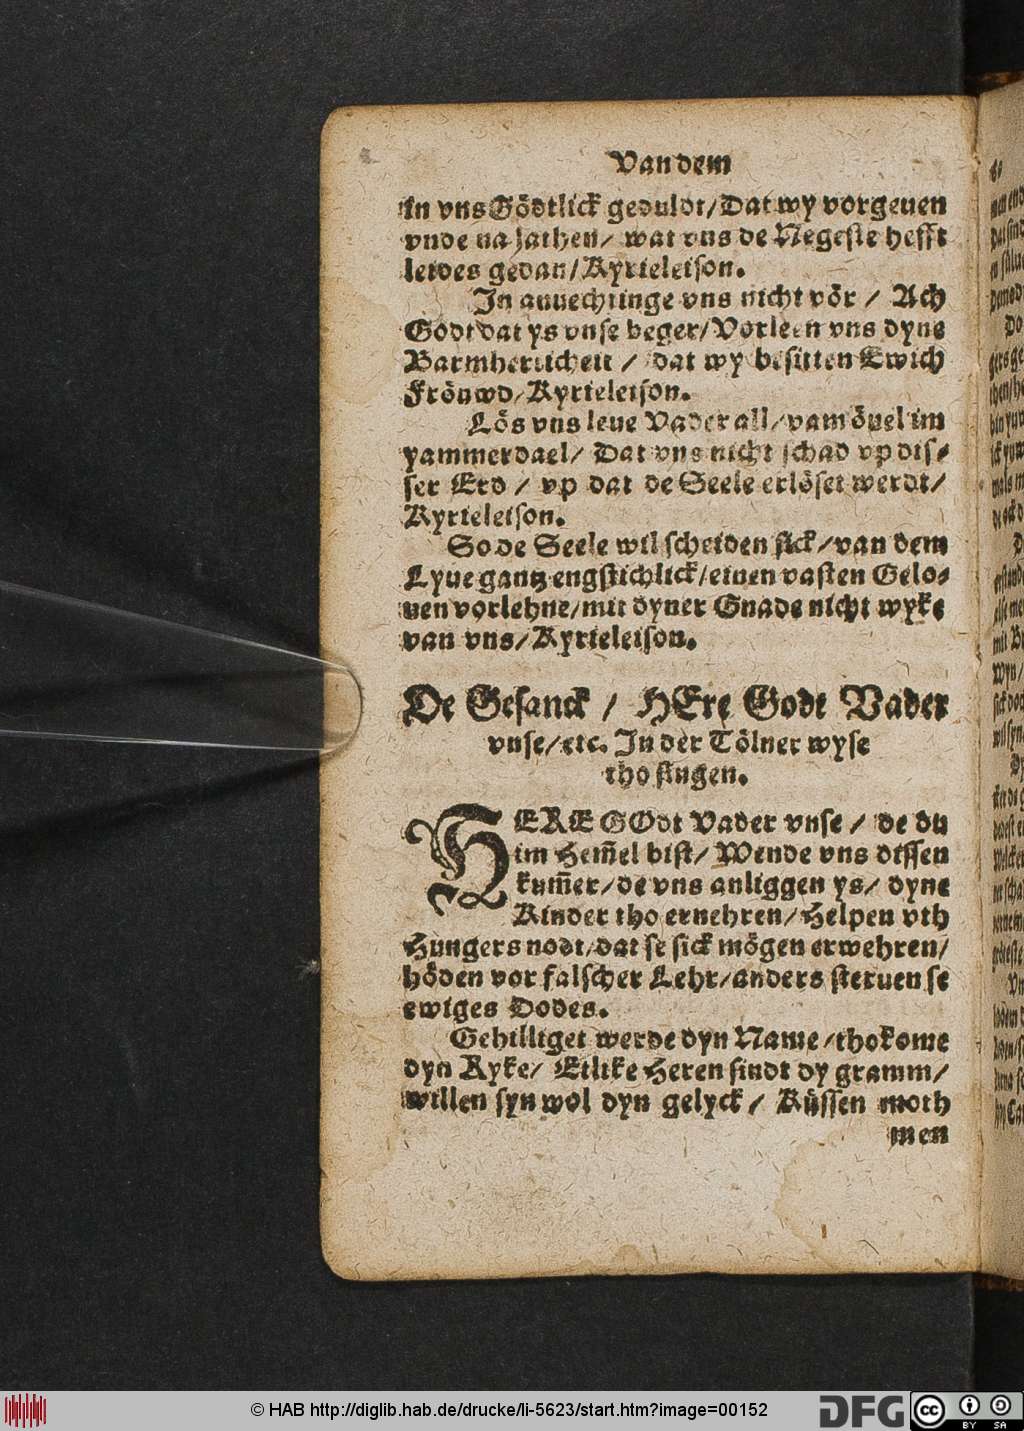 Van dem
In vns Gödtlick geduldt/Dat wy vorgeuen
vnde na lathen/ wat vns de Negeste hefft
leides gedan/Kyrieleison.
In anuechtinge vns nicht vör / Ach
Godt dat ys vnse beger/Vorleen vns dyne
Barmherticheit / dat wy besitten Ewich
Fröuwd/Kyrieleison.
Lös vns leue Vader all/vam öuel im
yammerdael/ Dat vns nicht schad vp dis⸗
ser Erd / vp dat de Seele erlöset werdt/
Kyrieleison.
So de Seele wil scheiden sick/van dem
Lyue gantz engstichlick/einen vasten Gelo⸗
uen vorlehne/mit dyner Gnade nicht wyke
van vns/Kyrieleison.
De Gesanck / HEre Godt Vader
vnse/etc. In der Tölner wyse
tho singen.
HERE GOdt Vader vnse / de du
im Hem̃el bist/ Wende vns dissen
kum̃er/de vns anliggen ys/ dyne
Kinder tho ernehren/Helpen vth
Hungers nodt/dat se sick mögen erwehren/
höden vor falscher Lehr/anders steruen se
ewiges Dodes.
Gehilliget werde dyn Name/thokome
dyn Ryke/ Etlike Heren sindt dy gramm/
willen syn wol dyn gelyck/ Küssen moth
men
© HAB http://diglib.hab.de/drucke/li-5623/start.htm?image=00152
DFG
cc
BY SA